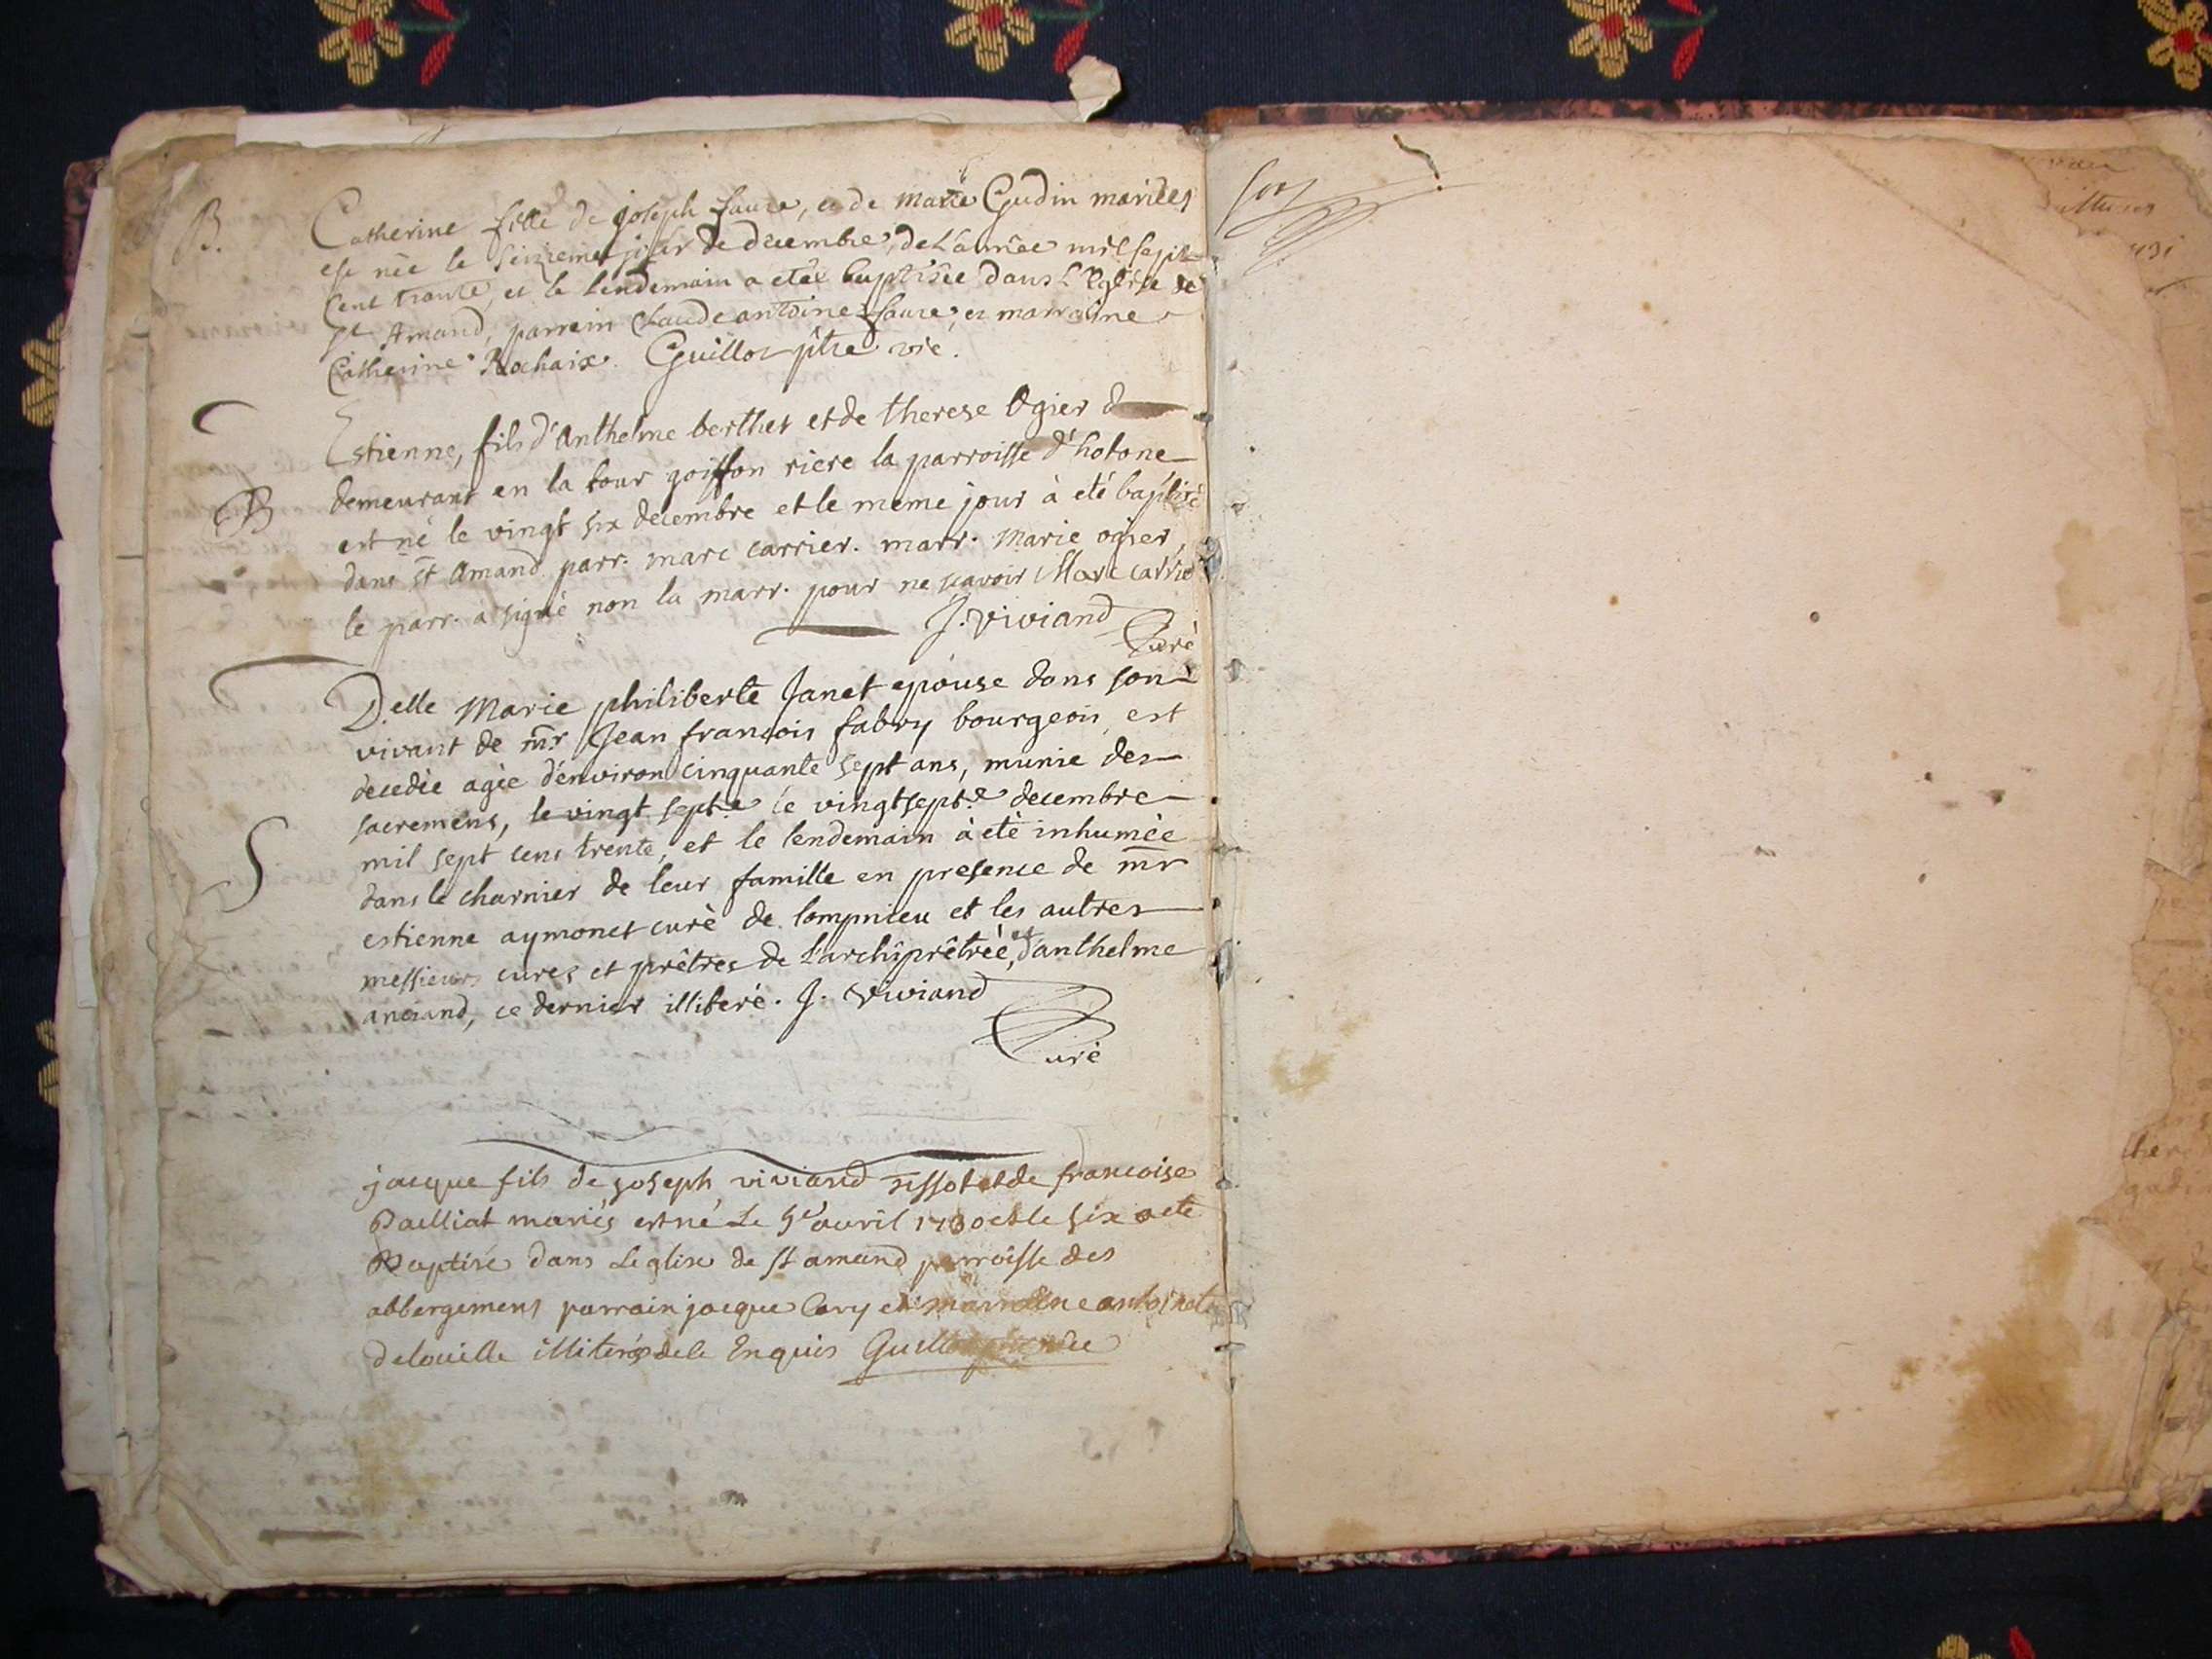 B.
Catherine fille de joseph faure, et de marie Gudin mariées
est née le seizieme jour de decembre, de L'année mil sept
cent trante, et le lendemain a etée baptisée dans L'Eglise de
st Amand, parrein Claude antoine faure, et marraine
Catherine Rochaix. Guillot ptre vic.
B
Estienne, fils d'Anthelme berthet et de therese Ogier d
demeurant en la tour goiffon riere la parroisse d'hotone
est né le vingt six decembre et le meme jour à eté baptisé
dans st Amand parr. marc carrier. marr. Marie ogier,
le parr. a signé non la marr. pour ne scavoir Marc carrie
J. Viviand
Curé
S
Delle Marie philiberte Janet epouse dans son
vivant de mr Jean francois fabry bourgeois, est
decedée agée d'environ cinquante sept ans, munie des
sacremens, le vingt septe le vingtsept.e decembre
mil sept cens trente, et le lendemain à eté inhumée
dans le charnier de leur famille en presence de mr
estienne aymonet curé de lompnieu et les autres
messieurs cures et prêtres de l'archiprêtrée, et d'anthelme
anciand, ce dernier illiteré. J. Viviand
Curé
jacque fils de joseph viviand et de francoise
Pailliat mariés est né Le 5e avril 1730 et le six a ete
Baptisé dans Leglise de st amand parroisse des
abbergemens parrain jacque Cary et marraine antoinete
delouille illiterés de ce Enquis Guillot